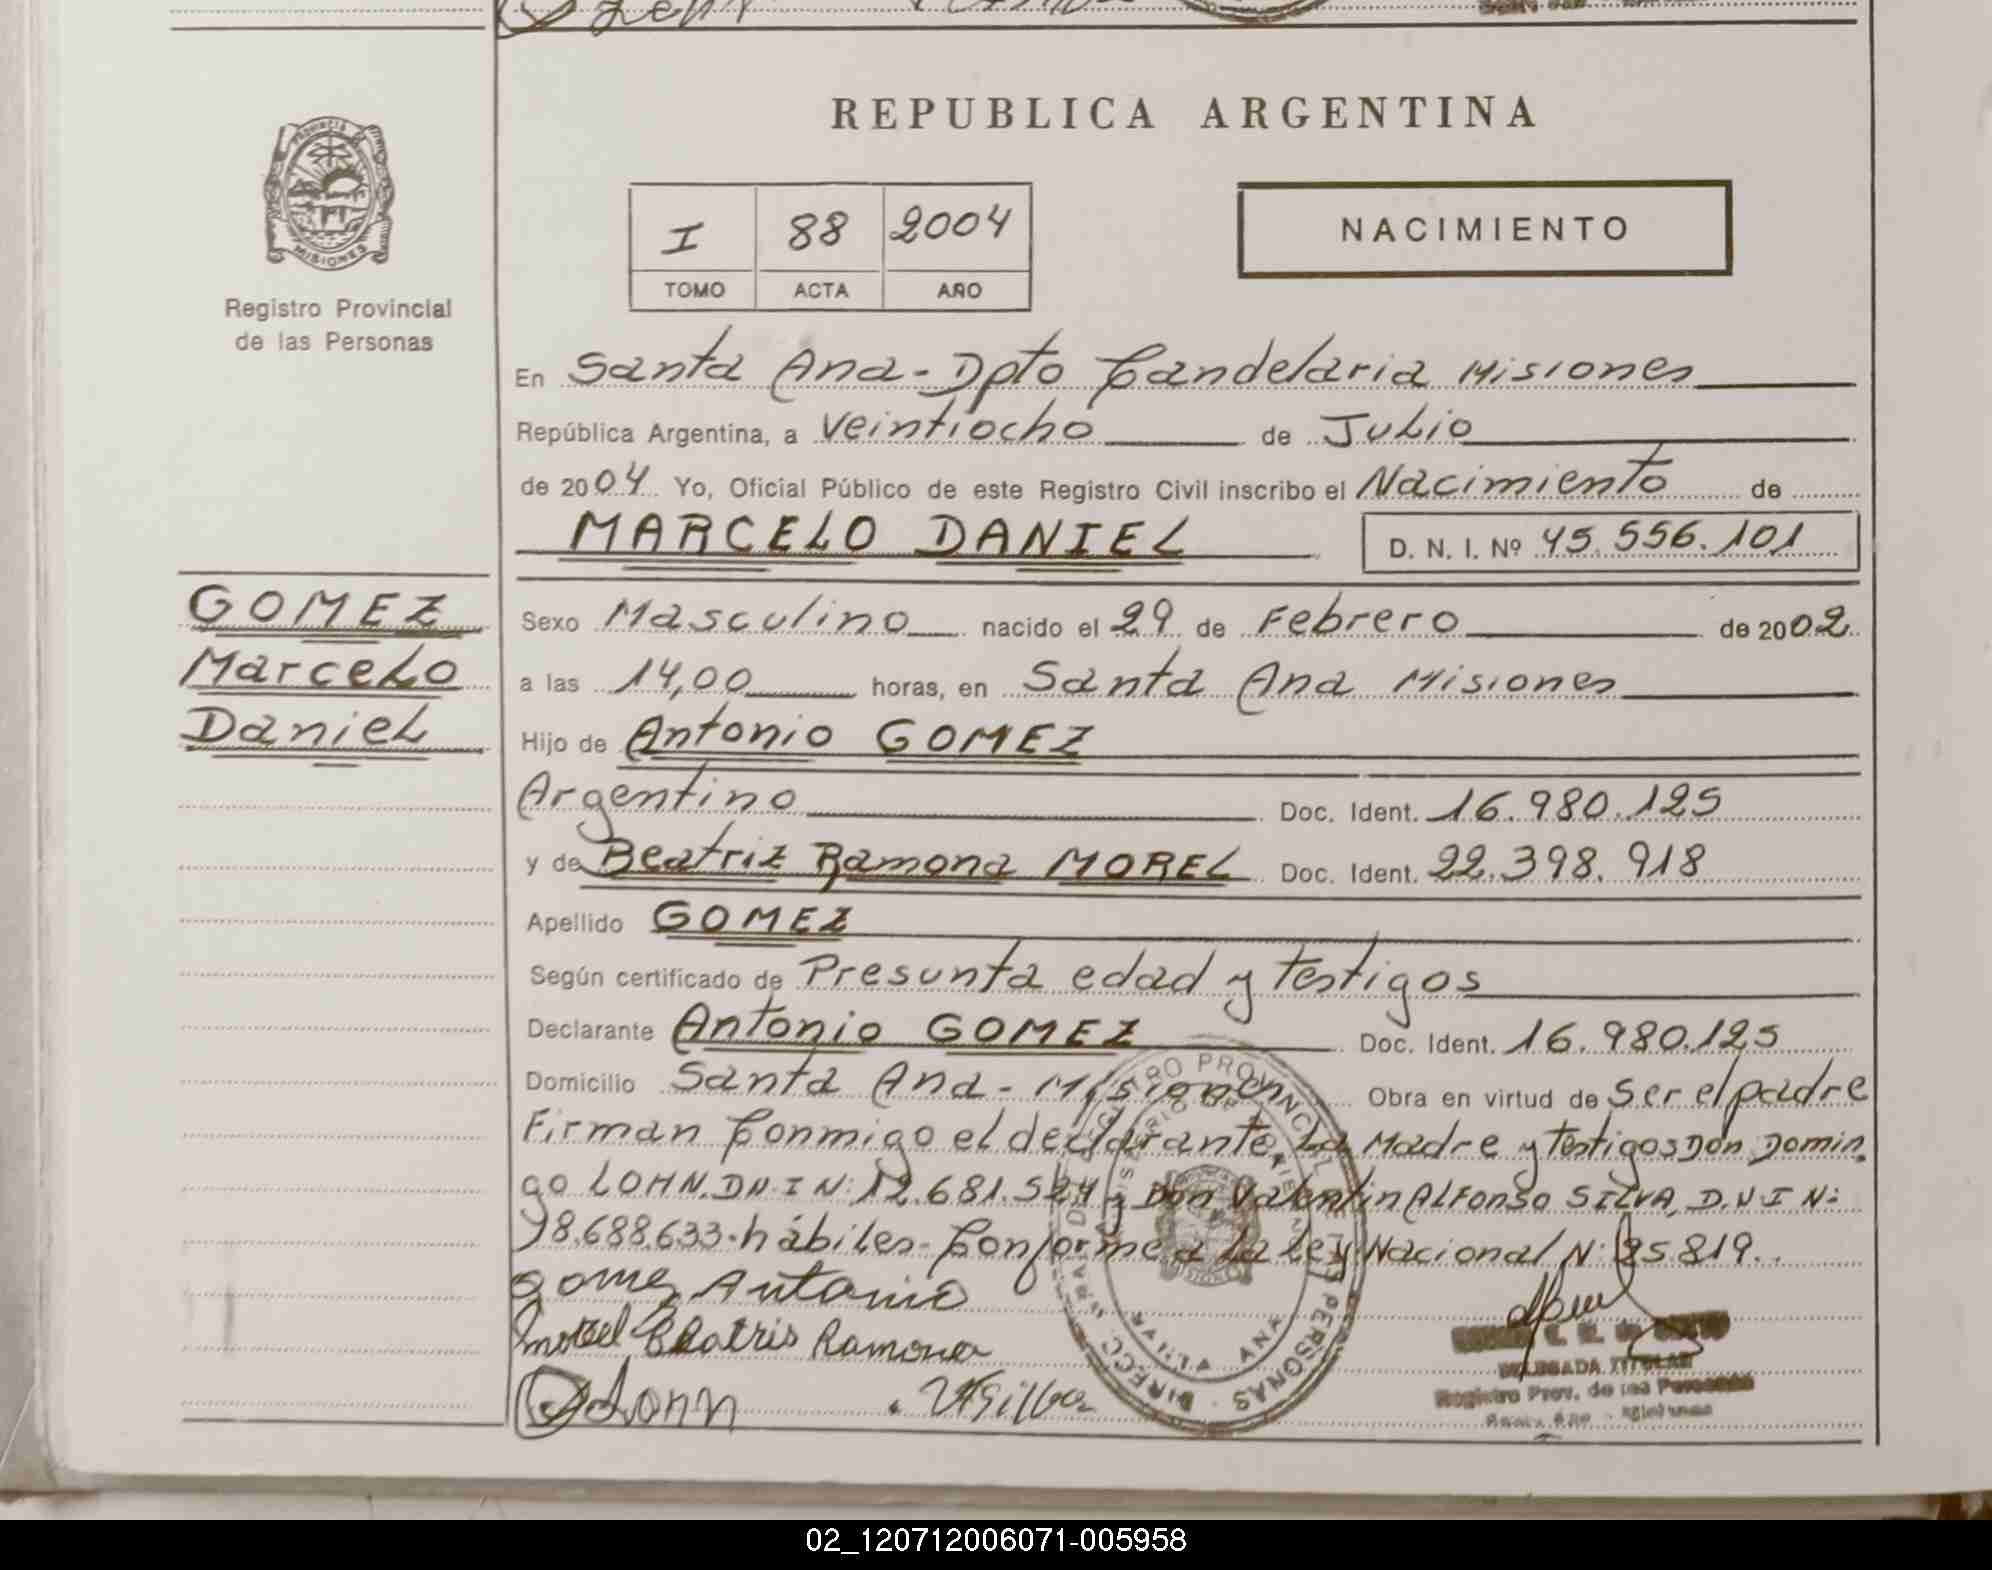 REPUBLICA ARGENTINA
PROVINCIA
MISIONES
Registro Provincial
de las Personas
I 88 2004
TOMO ACTA AÑO
NACIMIENTO
En Santa Ana - Dpto Candelaria Misiones
República Argentina, a Veintiocho de Julio
de 2004 Yo, Oficial Público de este Registro Civil inscribo el Nacimiento de
MARCELO DANIEL D. N. I. Nº 45.556.101
GOMEZ
Marcelo
Daniel
Sexo Masculino nacido el 29 de Febrero de 2002
a las 14,00 horas, en Santa Ana Misiones
Hijo de Antonio GOMEZ
Argentino Doc. Ident. 16.980.125
y de Beatriz Ramona MOREL Doc. Ident. 22.398.918
Apellido GOMEZ
Según certificado de Presunta edad y Testigos
Declarante Antonio GOMEZ Doc. Ident. 16.980.125
Domicilio Santa Ana - Misiones Obra en virtud de Ser el padre
Firman Conmigo el declarante, La Madre y Testigos Don Domin
go LOHN. D.N.I N: 12.681.524 y Don Valentin ALFONSO SILVA, D.N.I N:
18.688.633. hábiles - Conforme a La Ley Nacional N: 25.819.
Gomez Antonio
Morel Beatris Ramona
Lohn
DELEGADA TITULAR
Registro Prov. de las Personas
02_120712006071-005958